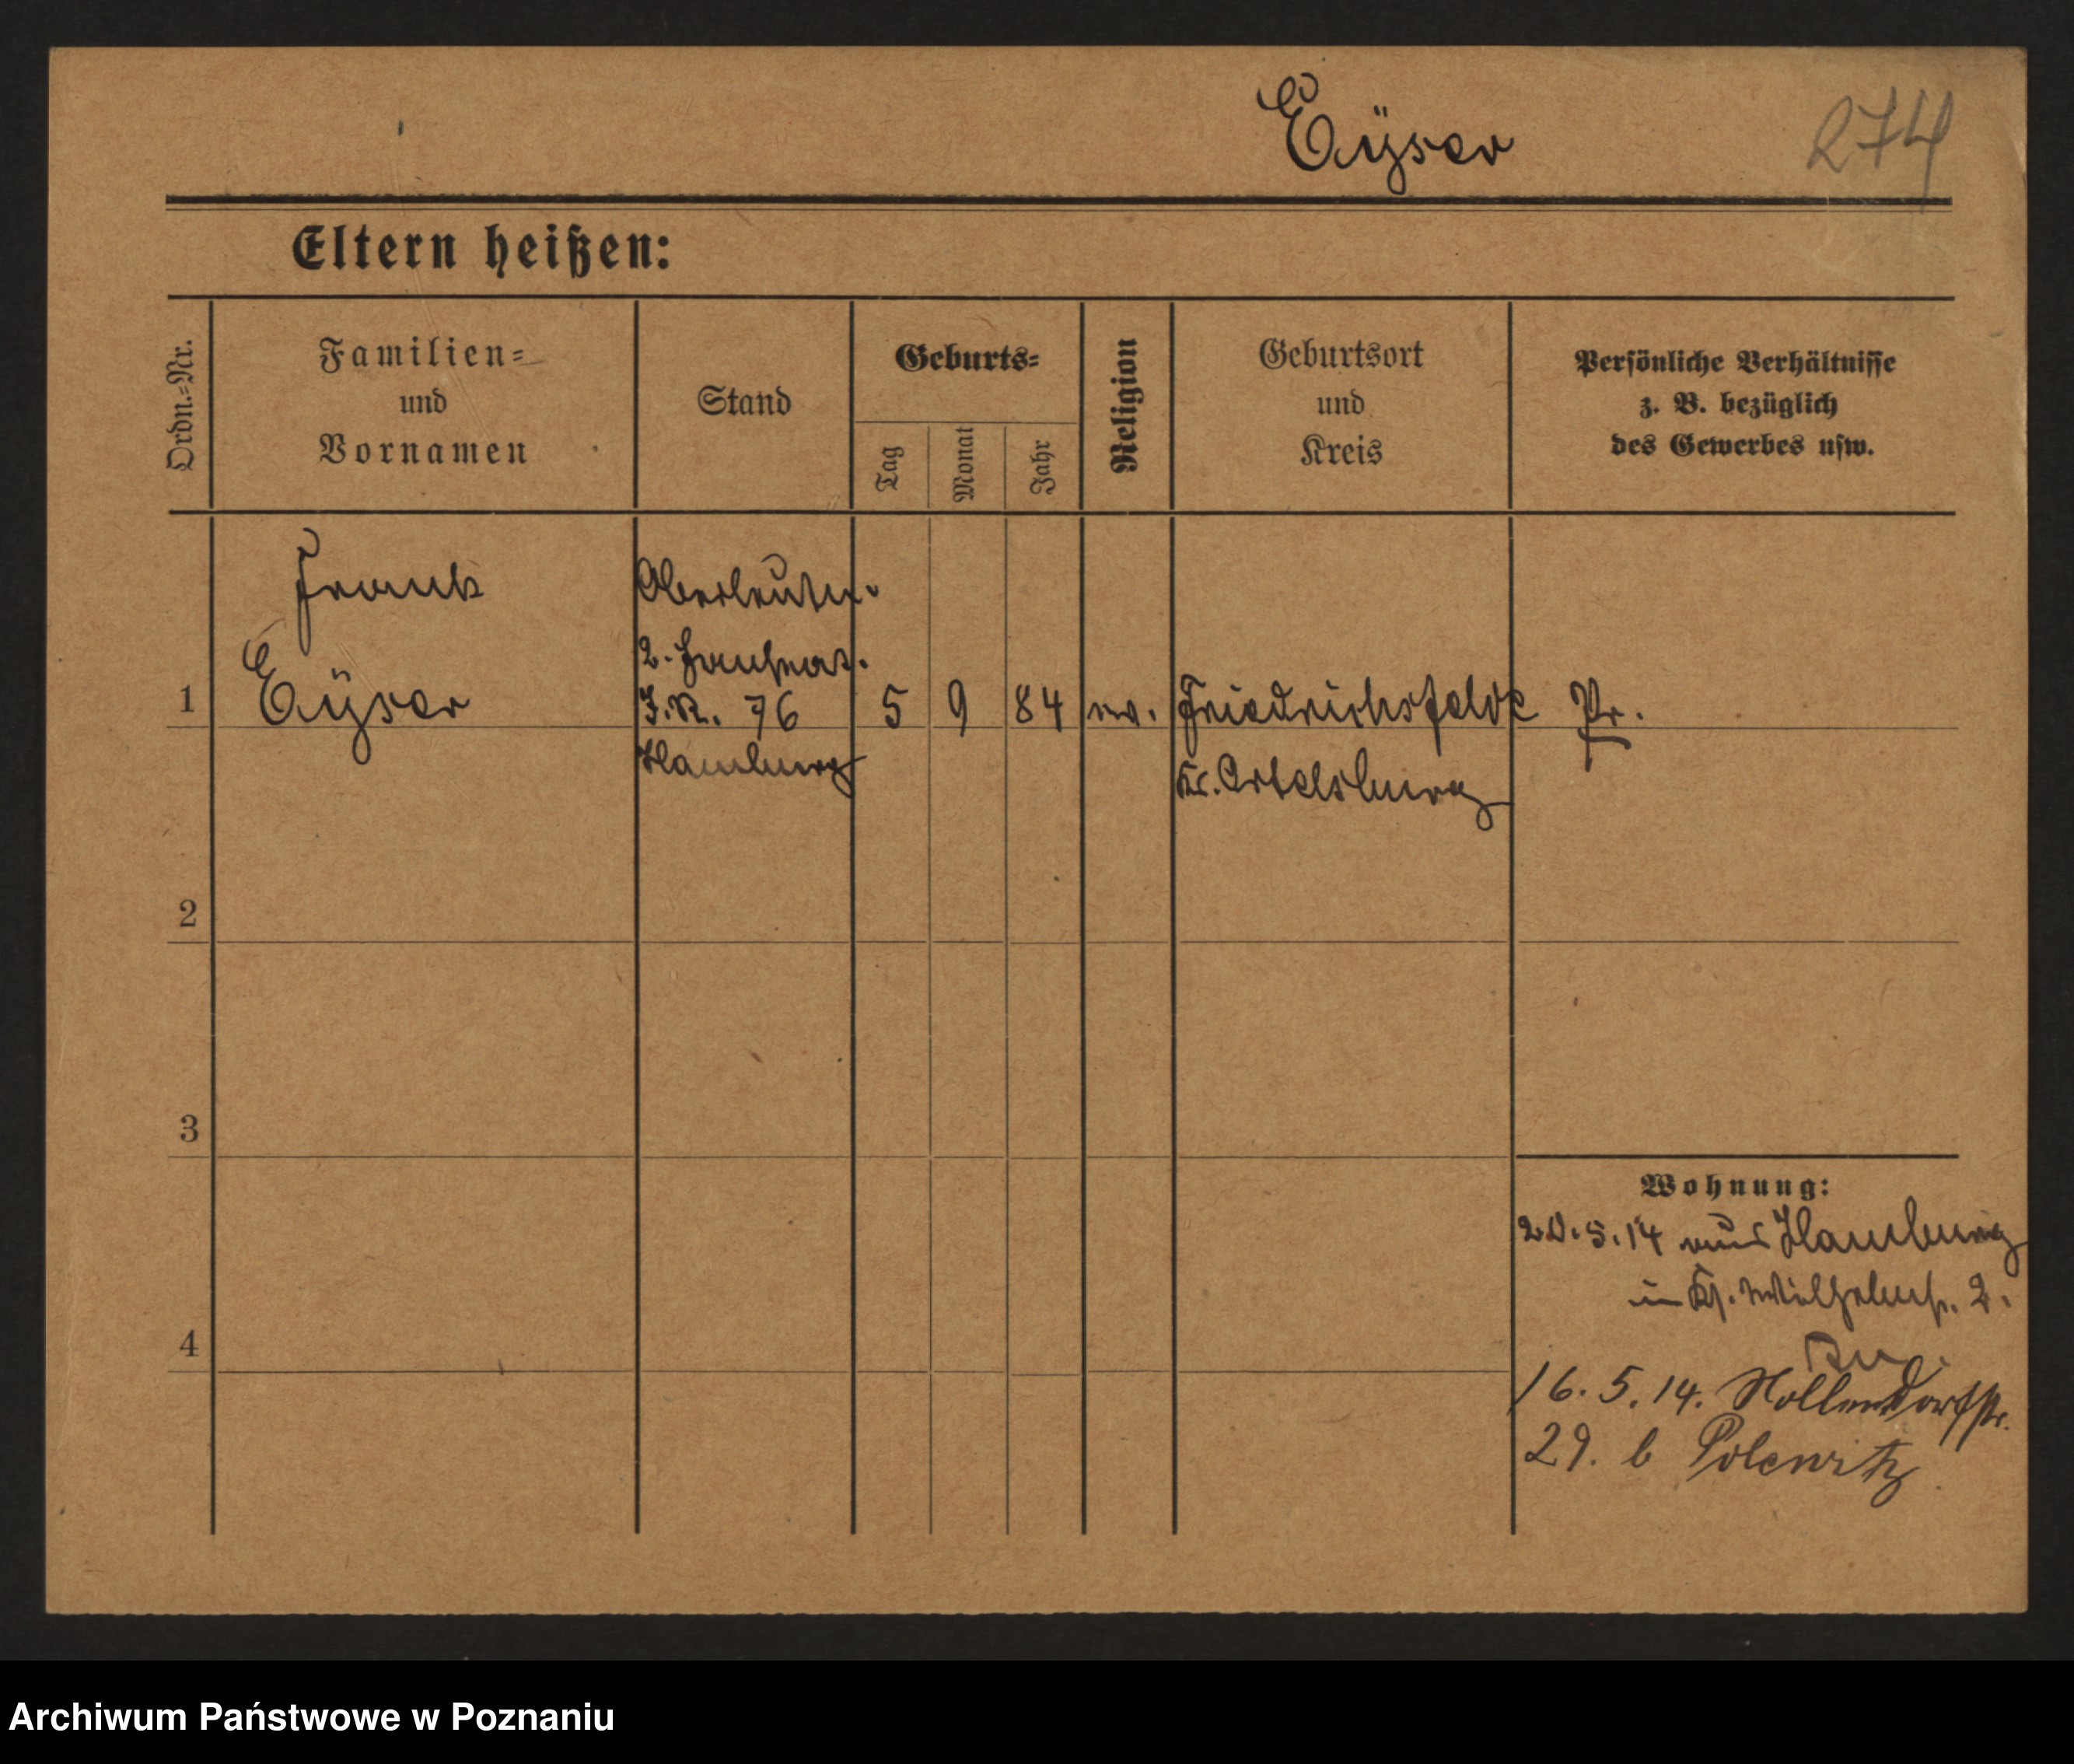 Eÿser
274
Eltern heißen:
Ordn.-Nr.
Familien-
und
Vornamen
Stand
Geburts-
Tag
Monat
Jahr
Religion
Geburtsort
und
Kreis
Persönliche Verhältnisse
z. B. bezüglich
des Gewerbes usw.
1
Frank
Eÿser
Oberleutn.
J.R. 76
Hamburg
5
9
84
ev.
Friedrichsfelde
Kr. Ortelsburg
Pr.
2
3
4
Wohnung:
20.5.14 aus Hamburg
in Wilhelmst. 2.
16. 5. 14. Nollendorfstr.
29. b Polewitz
Archiwum Państwowe w Poznaniu